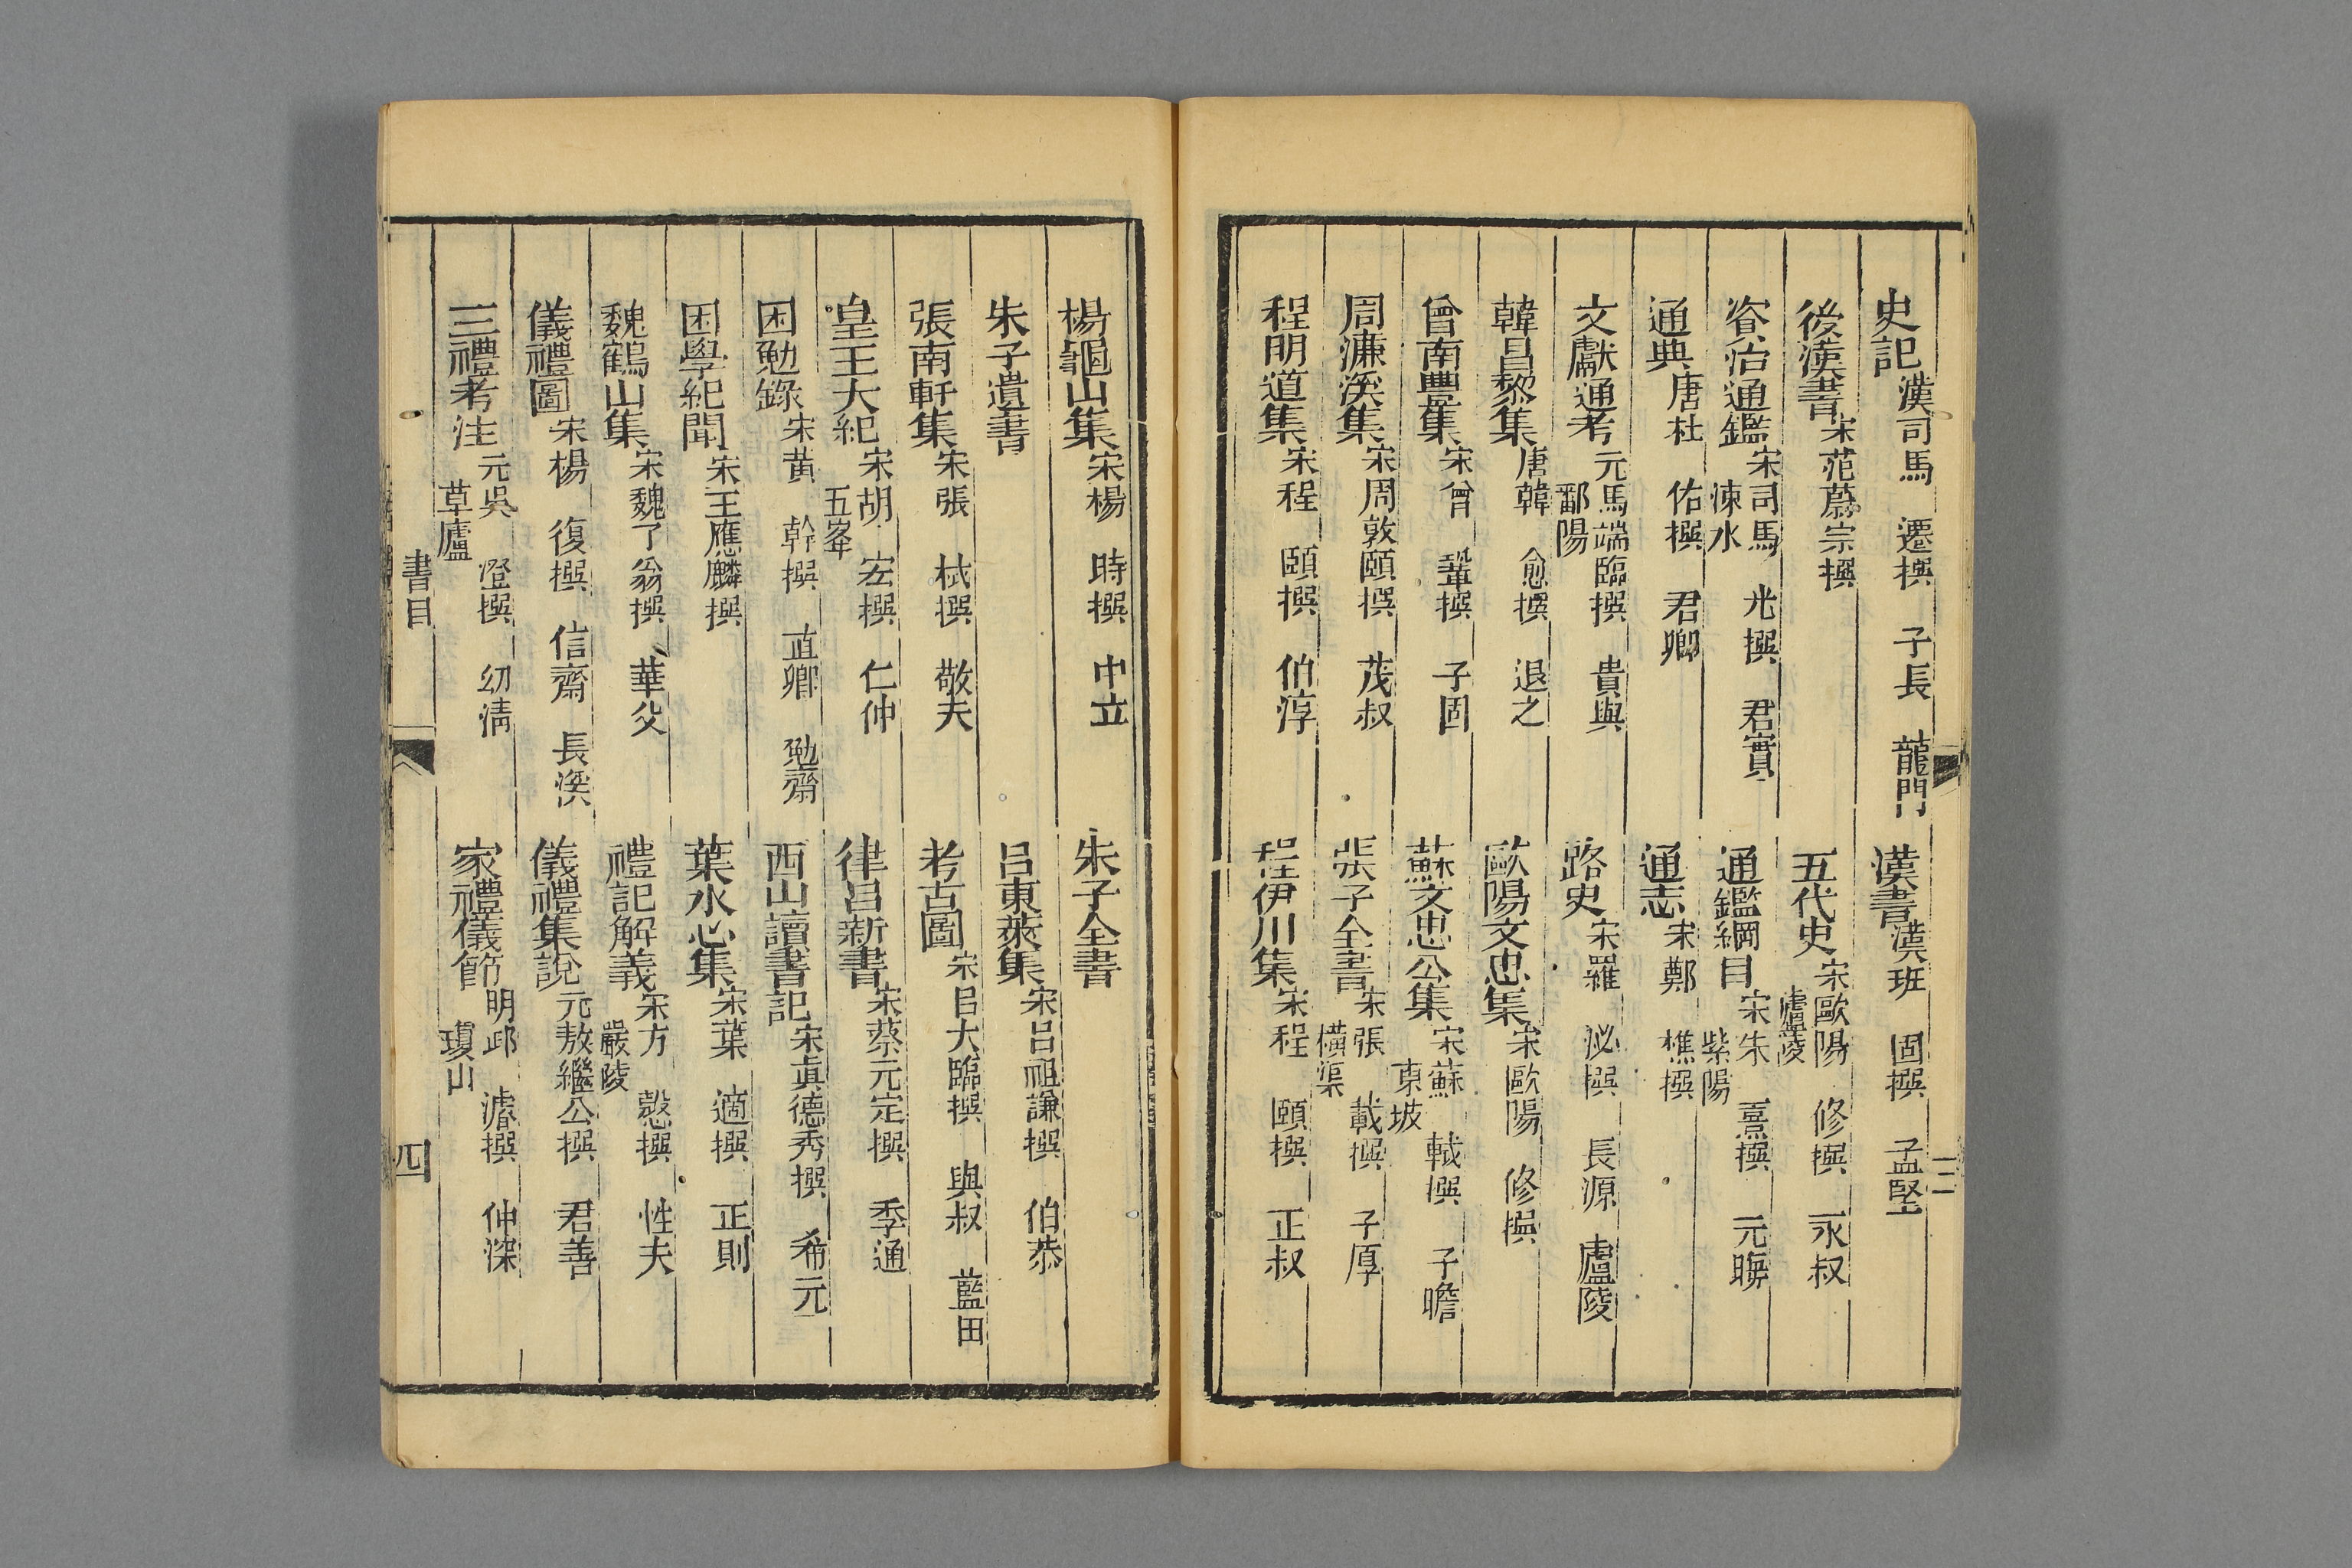 史記 漢司馬 遷撰 子長 龍門 漢書 漢班 固撰 孟堅
後漢書 宋范蔚宗撰 五代史 宋歐陽 修撰 永叔 廬陵
資治通鑑 宋司馬 光撰 君實 涑水 通鑑綱目 宋朱 熹撰 元晦 紫陽
通典 唐杜 佑撰 君卿 通志 宋鄭 樵撰
文獻通考 元馬端臨撰 貴與 鄱陽 路史 宋羅 泌撰 長源 廬陵
韓昌黎集 唐韓 愈撰 退之 歐陽文忠集 宋歐陽 修撰
曾南豐集 宋曾 鞏撰 子固 蘇文忠公集 宋蘇 軾撰 子瞻 東坡
周濂溪集 宋周敦頤撰 茂叔 張子全書 宋張 載撰 子厚 橫渠
程明道集 宋程 頤撰 伯淳 程伊川集 宋程 頤撰 正叔
三
楊龜山集 宋楊 時撰 中立 朱子全書
朱子遺書 呂東萊集 宋呂祖謙撰 伯恭
張南軒集 宋張 栻撰 敬夫 考古圖 宋呂大臨撰 與叔 藍田
皇王大紀 宋胡 宏撰 仁仲 五峯 律呂新書 宋蔡元定撰 季通
困勉錄 宋黃 幹撰 直卿 勉齋 西山讀書記 宋真德秀撰 希元
困學紀聞 宋王應麟撰 葉水心集 宋葉 適撰 正則
魏鶴山集 宋魏了翁撰 華父 禮記解義 宋方 愨撰 性夫 嚴陵
儀禮圖 宋楊 復撰 信齋 長溪 儀禮集說 元敖繼公撰 君善
三禮考注 元吳 澄撰 幼清 草廬 家禮儀節 明邱 濬撰 仲深 瓊山
書目 四